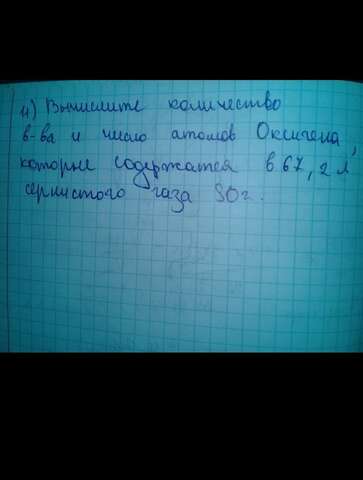 4) Вычислите количество
в-ва и число атомов Оксигена,
которые содержатся в 67,2 л
сернистого газа SO2.